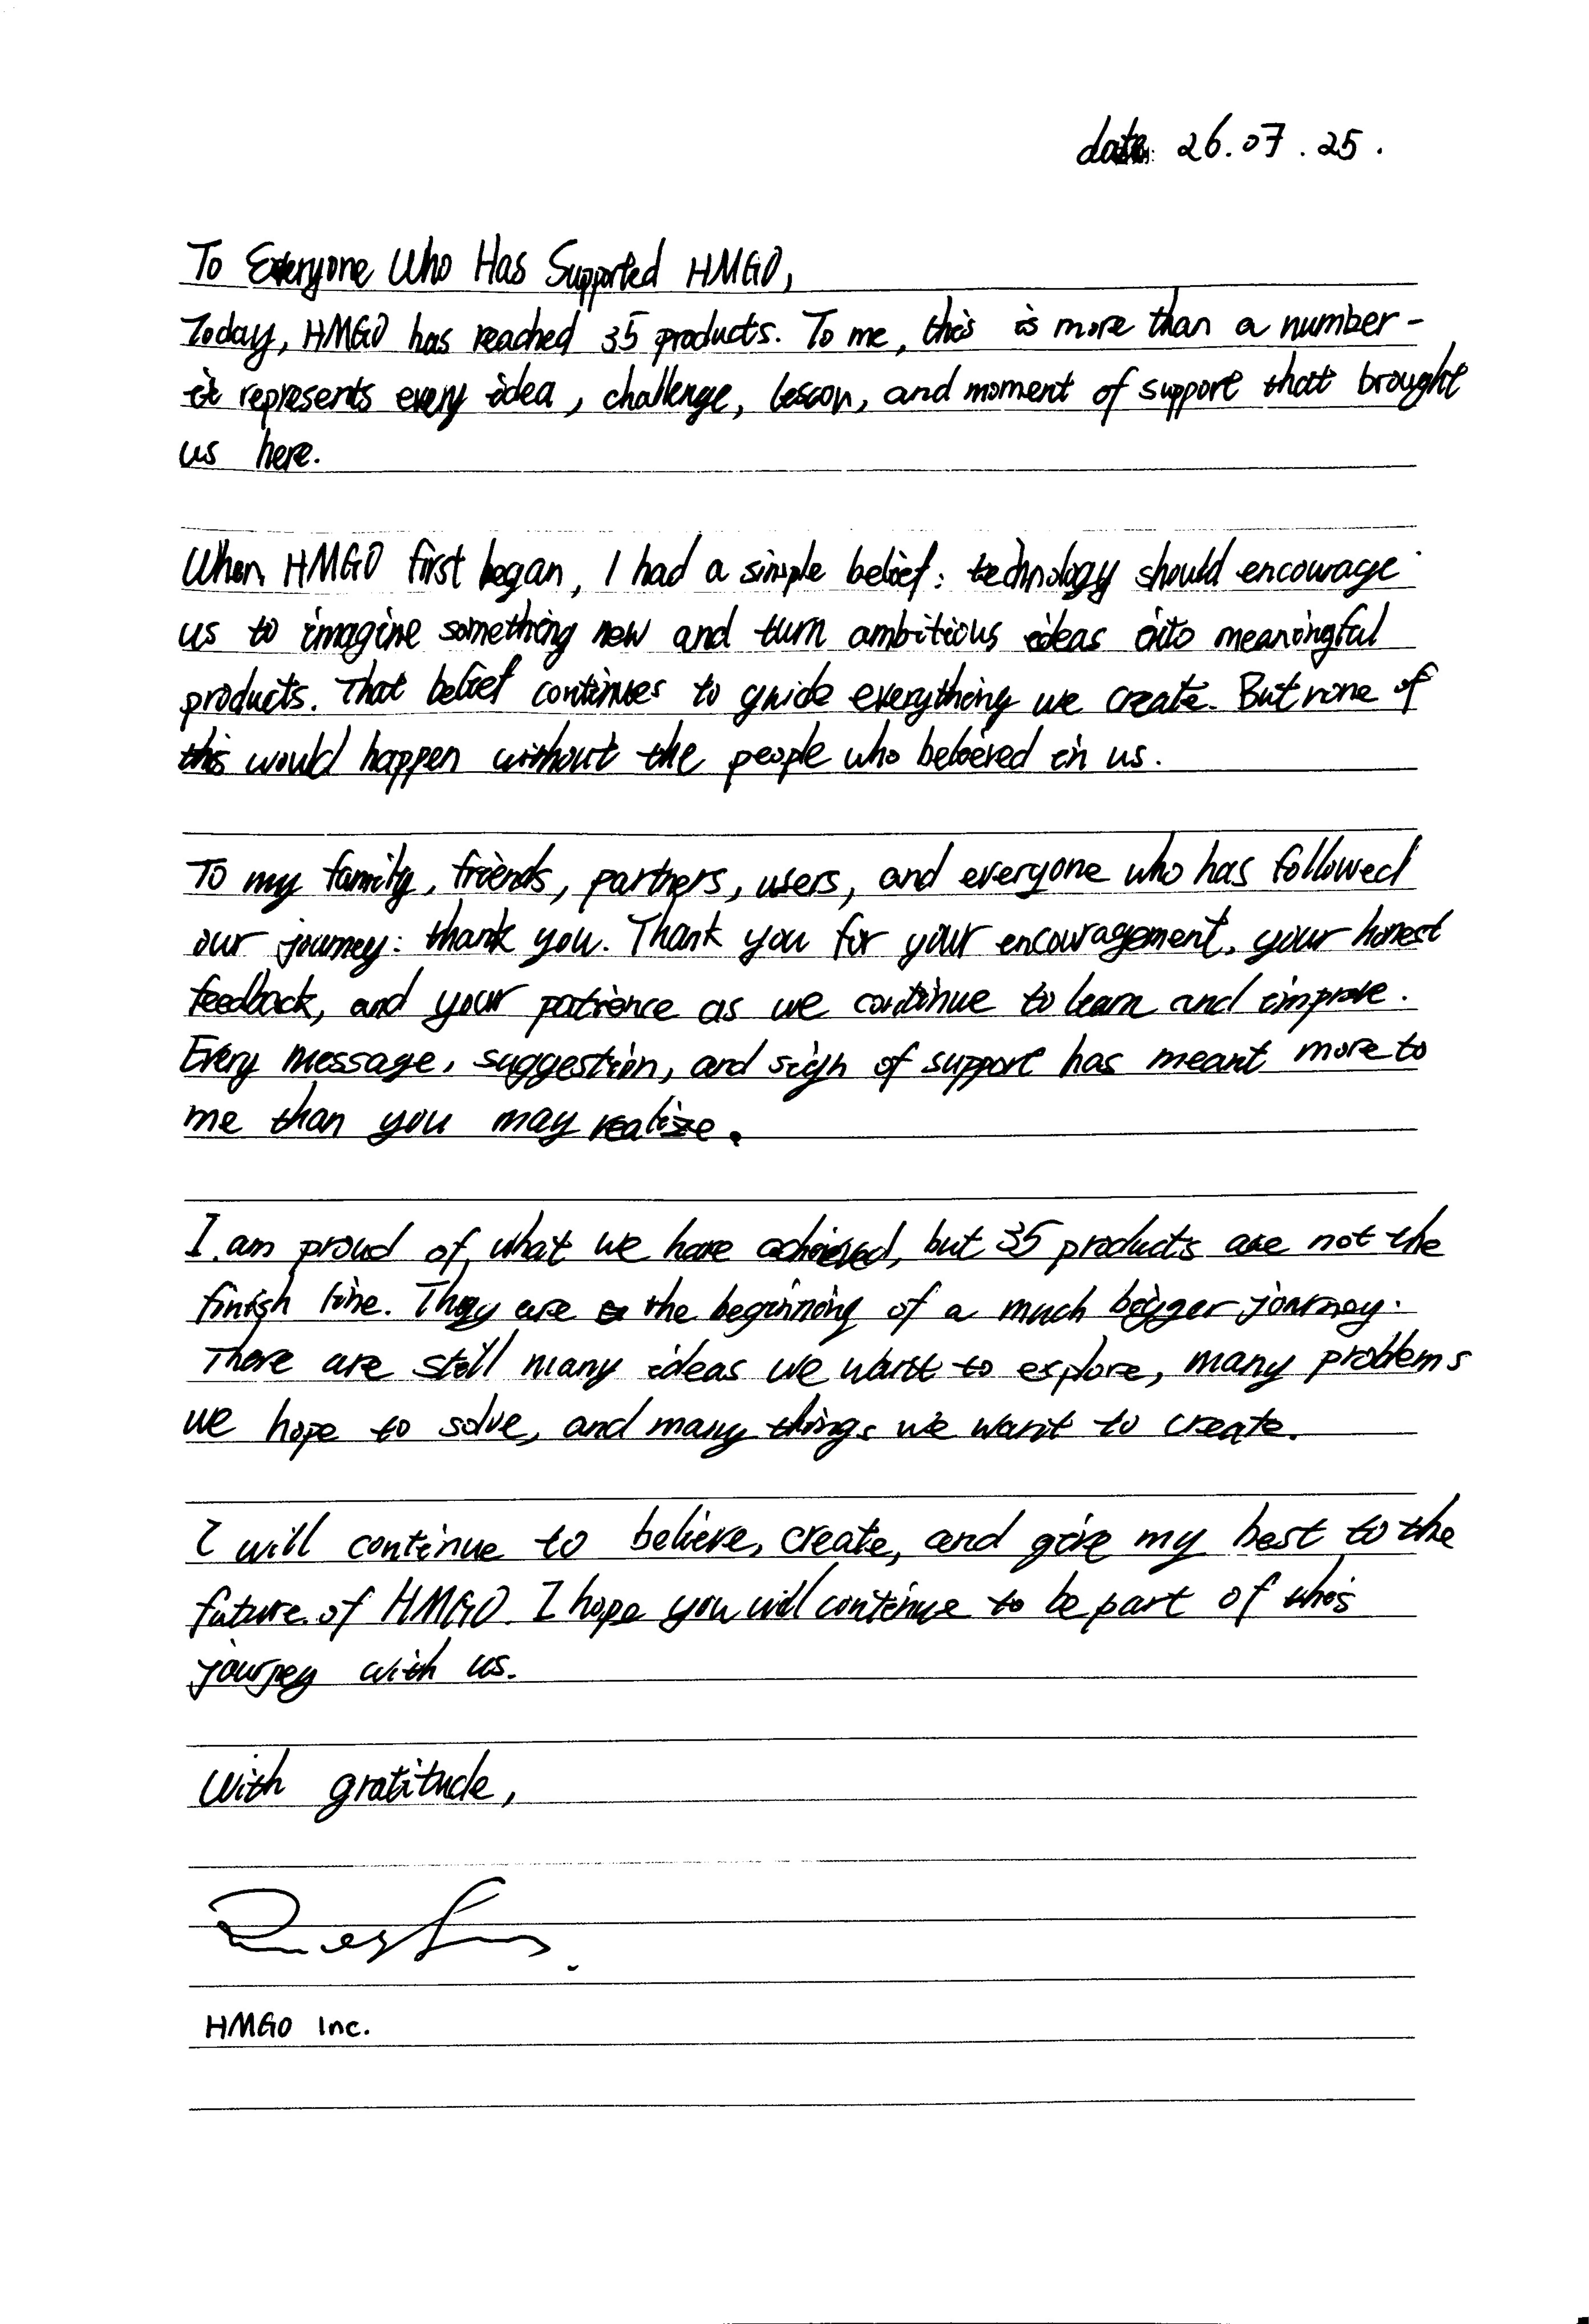 date: 26.07.25.
To Everyone Who Has Supported HMGO,
Today, HMGO has reached 35 products. To me, this is more than a number -
it represents every idea, challenge, lesson, and moment of support that brought
us here.
When HMGO first began, I had a simple belief: technology should encourage
us to imagine something new and turn ambitious ideas into meaningful
products. That belief continues to guide everything we create. But none of
this would happen without the people who believed in us.
To my family, friends, partners, users, and everyone who has followed
our journey: thank you. Thank you for your encouragement, your honest
feedback, and your patience as we continue to learn and improve.
Every message, suggestion, and sign of support has meant more to
me than you may realize.
I am proud of what we have achieved, but 35 products are not the
finish line. They are the beginning of a much bigger journey.
There are still many ideas we want to explore, many problems
we hope to solve, and many things we want to create.
I will continue to believe, create, and give my best to the
future of HMGO. I hope you will continue to be part of this
journey with us.
With gratitude,
HMGO Inc.